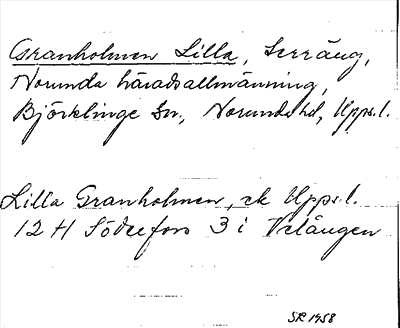 Granholmen Lilla, Terräng,
Norunda häradsallmänning,
Björklinge Sn, Norunda hd, Upps. l.
Lilla Granholmen, ek Upps. l.
12 H Söderfors 3 i Velången
SR 1958